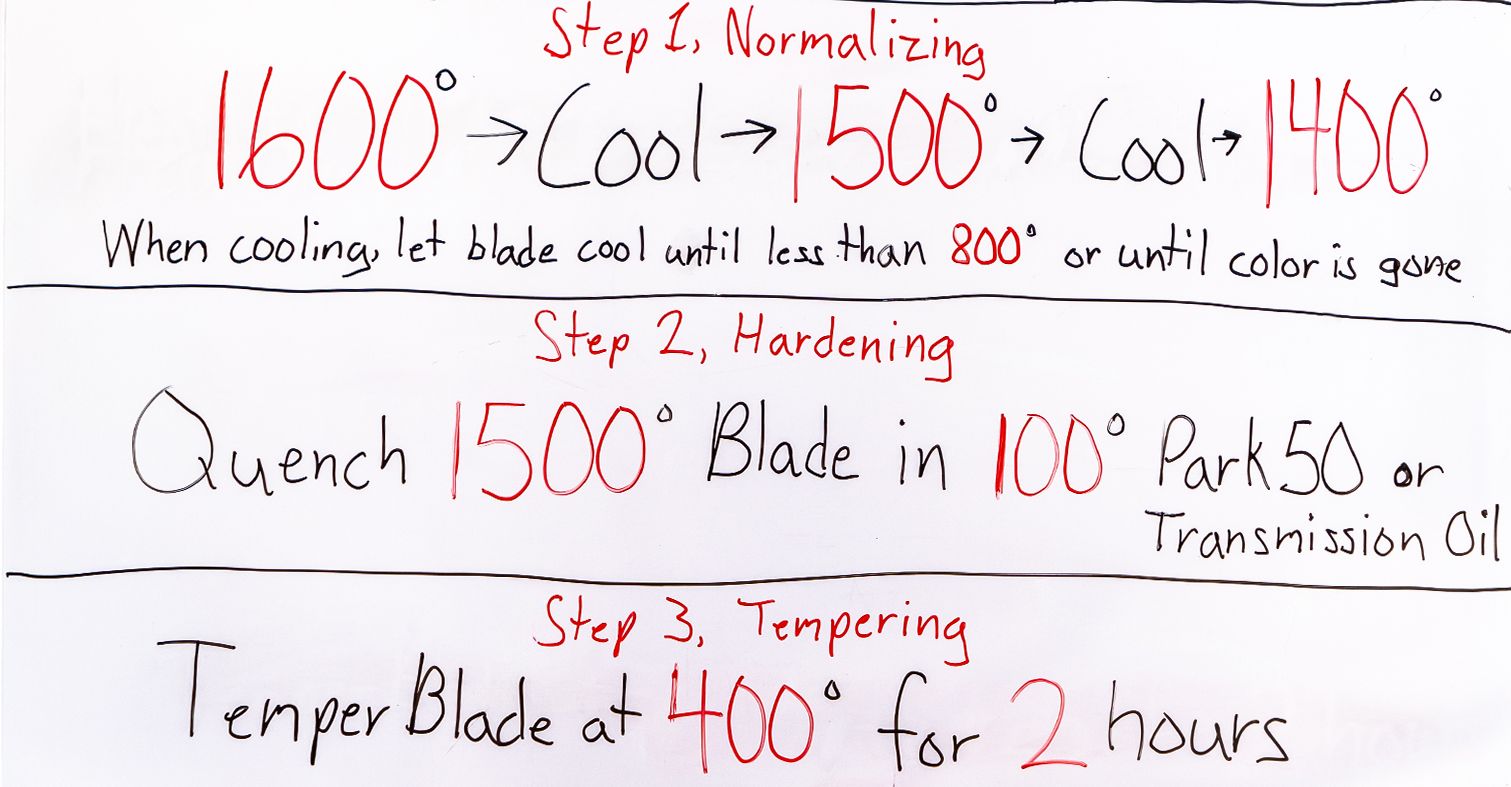 Step 1, Normalizing
1600° → Cool → 1500° → Cool → 1400°
When cooling, let blade cool until less than 800° or until color is gone
Step 2, Hardening
Quench 1500° Blade in 100° Park 50 or
Transmission Oil
Step 3, Tempering
Temper Blade at 400° for 2 hours